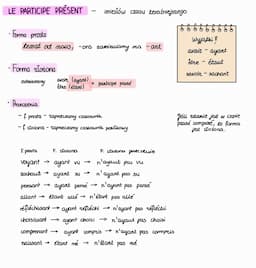 LE PARTICIPE PRÉSENT - imiesłów czasu teraźniejszego
Forma prosta
temat od nous, -ons zamieniamy na -ant
wyjątki!
avoir - ayant
être - étant
savoir - sachant
Forma złożona
avoir (ayant)
être (étant)
+ participe passé
Przeczenia
- f. prosta - zaprzeczamy czasownik
- f. złożona - zaprzeczamy czasownik posiłkowy
Jeśli zdanie jest w passé composé, to forma jest złożona.
f. prosta f. złożona
voyant → ayant vu → n'ayant pas vu
sachant → ayant su → n'ayant pas su
pensant → ayant pensé → n'ayant pas pensé
allant → étant allé → n'étant pas allé
réfléchissant → ayant réfléchi → n'ayant pas réfléchi
choisissant → ayant choisi → n'ayant pas choisi
comprenant → ayant compris → n'ayant pas compris
naissant → étant né → n'étant pas né